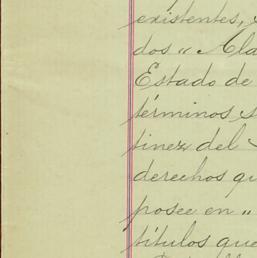 existentes,
dos "Ala
Estado de
términos s
tinez del
derechos qu
posee en "
títulos que